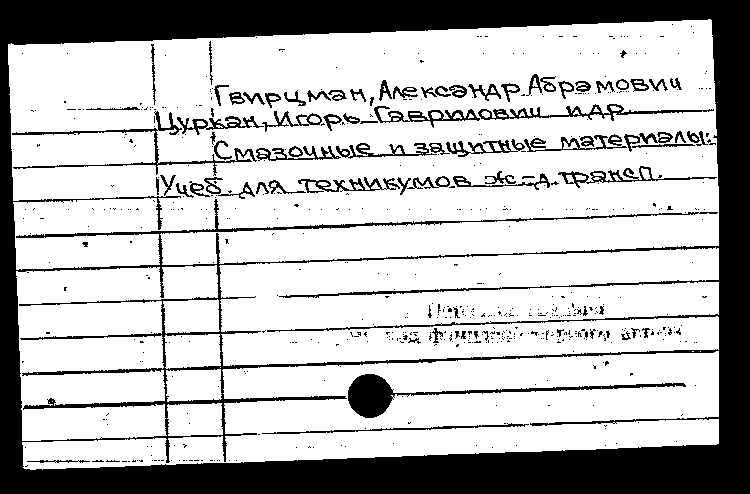 Гвирцман, Александр Абрамович
Цуркан, Игорь Гаврилович и др.
Смазочные и защитные материалы:
Учеб. для техникумов ж.-д. трансп.
под фамилией первого автора